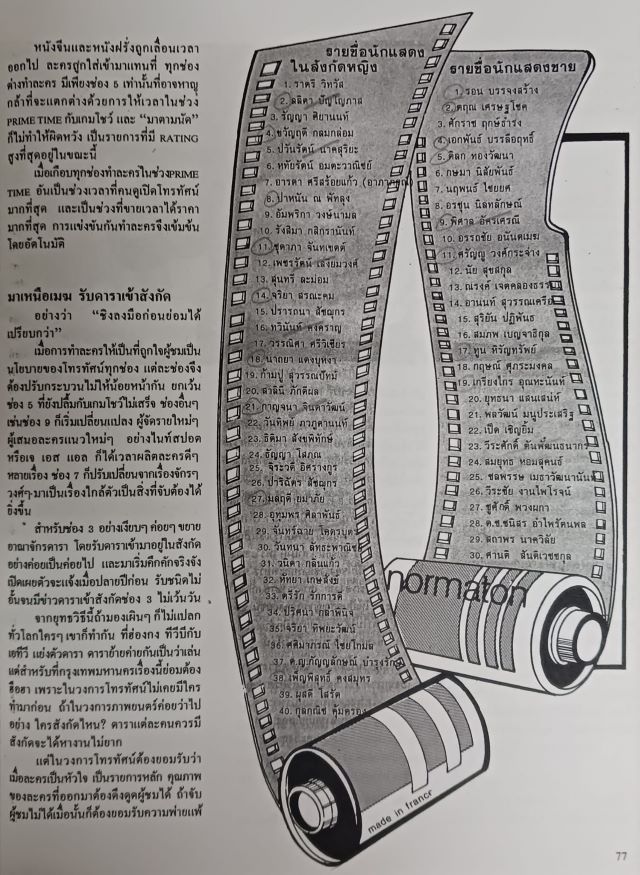 หนังจีนและหนังฝรั่งถูกเลื่อนเวลา
ออกไป ละครถูกใส่เข้ามาแทนที่ ทุกช่อง
ต่างทำละคร มีเพียงช่อง 5 เท่านั้นที่อาจหาญ
กล้าที่จะแตกต่างด้วยการให้เวลาในช่วง
PRIME TIME กับเกมโชว์ และ “มาตามนัด”
ก็ไม่ทำให้ผิดหวัง เป็นรายการที่มี RATING
สูงที่สุดอยู่ในขณะนี้
เมื่อเกือบทุกช่องทำละครในช่วงPRIME
TIME อันเป็นช่วงเวลาที่คนดูเปิดโทรทัศน์
มากที่สุด และเป็นช่วงที่ขายเวลาได้ราคา
มากที่สุด การแข่งขันทำละครจึงเข้มข้น
โดยอัตโนมัติ
มาเหนือเมฆ รับดาราเข้าสังกัด
อย่างว่า “ชิงลงมือก่อนย่อมได้
เปรียบกว่า”
เมื่อการทำละครให้เป็นที่ถูกใจผู้ชมเป็น
นโยบายของโทรทัศน์ทุกช่อง แต่ละช่องจึง
ต้องปรับกระบวนไม่ให้น้อยหน้ากัน ยกเว้น
ช่อง 5 ที่ยังปลื้มกับเกมโชว์ไม่เสร็จ ช่องอื่นๆ
เช่นช่อง 9 ก็เริ่มเปลี่ยนแปลง ผู้จัดรายใหม่ๆ
ผู้เสนอละครแนวใหม่ๆ อย่างไนท์สปอต
หรือเจ เอส แอล ก็ได้เวลาผลิตละครดีๆ
หลายเรื่อง ช่อง 7 ก็ปรับเปลี่ยนจากเรื่องจักรๆ
วงศ์ๆ มาเป็นเรื่องใกล้ตัวเป็นสิ่งที่จับต้องได้
ยิ่งขึ้น
สำหรับช่อง 3 อย่างเงียบๆ ค่อยๆ ขยาย
อาณาจักรดารา โดยรับดาราเข้ามาอยู่ในสังกัด
อย่างค่อยเป็นค่อยไป และมาเริ่มคึกคักจริงจัง
เปิดเผยตัวจะแจ้งเมื่อปลายปีก่อน รับชนิดไม่
อั้นจนมีข่าวดาราเข้าสังกัดช่อง 3 ไม่เว้นวัน
จากยุทธวิธีนี้ถ้ามองเผินๆ ก็ไม่แปลก
ทั่วโลกใครๆ เขาก็ทำกัน ที่ฮ่องกง ทีวีบีกับ
เอทีวี แย่งตัวดารา ดาราย้ายค่ายกันเป็นว่าเล่น
แต่สำหรับที่กรุงเทพมหานครเรื่องนี้ย่อมต้อง
ฮือฮา เพราะในวงการโทรทัศน์ไม่เคยมีใคร
ทำมาก่อน ถ้าในวงการภาพยนตร์ค่อยว่าไป
อย่าง ใครสังกัดไหน? ดาราแต่ละคนควรมี
สังกัดจะได้หางานไม่ยาก
แต่ในวงการโทรทัศน์ต้องยอมรับว่า
เมื่อละครเป็นหัวใจ เป็นรายการหลัก คุณภาพ
ของละครที่ออกมาต้องดึงดูดผู้ชมได้ ถ้าจับ
ผู้ชมไม่ได้เมื่อนั้นก็ต้องยอมรับความพ่ายแพ้
รายชื่อนักแสดง
ในสังกัดหญิง
1. ราตรี วิทวัส
2. ลลิตา ปัญโญภาส
3. ธัญญา ศิยานนท์
4. ขวัญฤดี กลมกล่อม
5. ปวันรัตน์ นาคสุริยะ
6. หทัยรัตน์ อมตะวาณิชย์
7. อารดา ศรีสร้อยแก้ว (อาภาภรณ์)
8. ปาหนัน ณ พัทลุง
9. อัมพริกา วงษ์นามล
10. รังสิมา กสิกรานันท์
11. ชุดาภา จันทเขตต์
12. เพชรรัตน์ เลงียมวงศ์
13. สุนทรี ละม่อม
14. จริยา สรณะคม
15. ปรารถนา สัชฌุกร
16. ทวินันท์ คงคราญ
17. วรรณิศา ศรีวิเชียร
18. นาถยา แดงบุหงา
19. ก้ามปู สุวรรณปัทม์
20. สาลินี ภักดีผล
21. กาญจนา จินดาวัฒน์
22. วันทิพย์ ภวภูตานนท์
23. ธิติมา สังขพิทักษ์
24. ธัญญา โสภณ
25. จิระวดี อิศรางกูร
26. ปาริฉัตร สัชฌุกร
27. มลฤดี ยมาภัย
28. อุทุมพร ศิลาพันธ์
29. จันทร์ฉาย โคตรบุตร
30. วันทนา ลัทธะพาณิช
31. วนิดา กลิ่นแก้ว
32. หัทยา เกษสังข์
33. ตรีรัก รักการดี
34. ปริศนา กล่ำพินิจ
35. จริยา ทิพยะวัฒน์
36. ศศิมาภรณ์ ไชยโกมล
37. ด.ญ.กัญญลักษณ์ บำรุงรักษ์
38. เพ็ญพิสุทธิ์ คงสมุทร
39. ผุสดี โสรัต
40. กุลกณิช คุ้มครอง
รายชื่อนักแสดงชาย
1. รอน บรรจงสร้าง
2. ดฤณ เศรษฐโชค
3. ศักราช ฤกษ์ธำรง
4. เอกพันธ์ บรรลือฤทธิ์
5. ดิลก ทองวัฒนา
6. กษมา นิสัยพันธ์
7. นฤพนธ์ ไชยยศ
8. อรชุน นิลทลักษณ์
9. พิศาล อัครเศรณี
10. อรรถชัย อนันตเมฆ
11. ศรัญญู วงศ์กระจ่าง
12. นัย สุขสกุล
13. ณรงค์ เจตคลองธรรม
14. อานนท์ สุวรรณเครือ
15. สุริยัน ปฏิพันธ์
16. สมภพ เบญจาธิกุล
17. ทูน หิรัญทรัพย์
18. กฤษณ์ ศุภระมงคล
19. เกรียงไกร อุณหะนันท์
20. ยุทธนา แสนเสน่ห์
21. พลวัฒน์ มนูประเสริฐ
22. เป็ด เชิญยิ้ม
23. วีระศักดิ์ ตันพัฒนถากร
24. สมยุทธ หอมสุคนธ์
25. ชลพรรษ เมธาวัฒนานันท์
26. วีระชัย งานไพโรจน์
27. ชูศักดิ์ พวงผกา
28. ด.ช.ชนิสร อำไพรัตนพล
29. สถาพร นาควิลัย
30. ศานติ สันติเวชชกุล
normaton
made in france
77